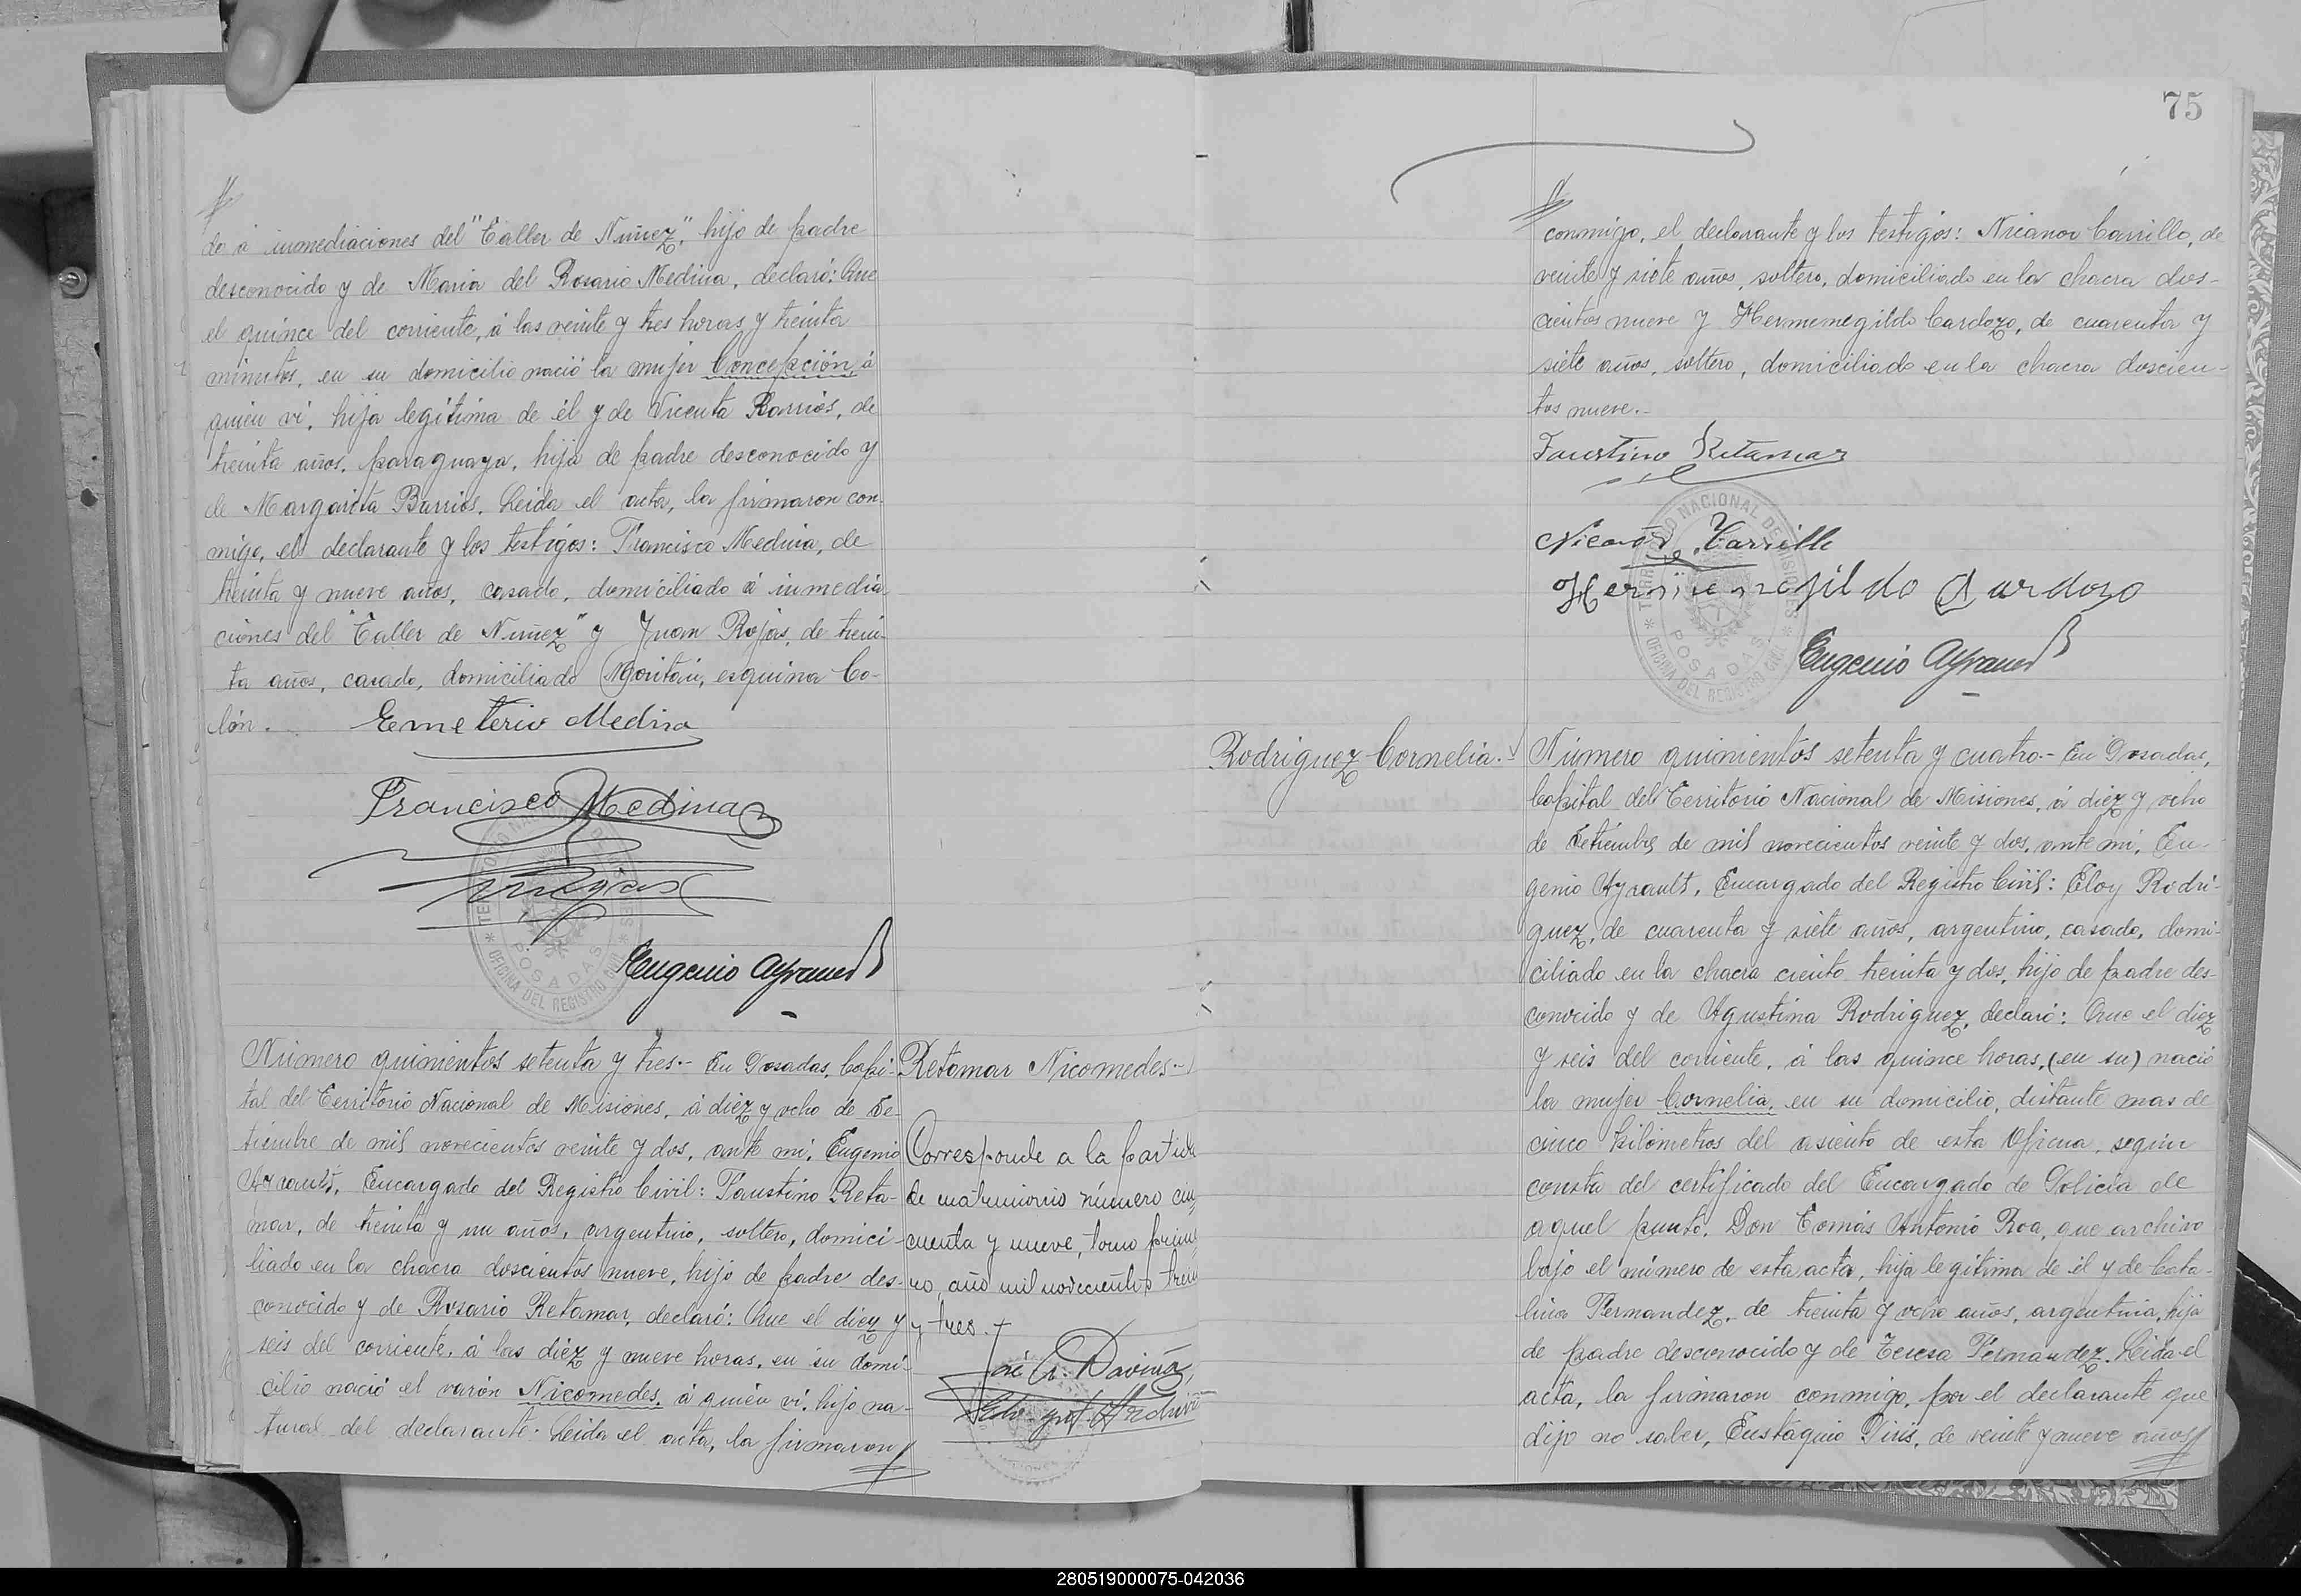 do á inmediaciones del "Taller de Nuñez", hijo de padre
desconocido y de Maria del Rosario Medina, declaró: Que
el quince del corriente, á las veinte y tres horas y treinta
minutos, en su domicilio nació la mujer Concepción á
quien vi, hija legitima de él y de Vicenta Barrios, de
treinta años, paraguaya, hija de padre desconocido y
de Margarita Barrios. Leida el acta, la firmaron con-
migo, el declarante y los testigos: Francisco Medina, de
treinta y nueve años, casado, domiciliado á inmedia-
ciones del "Taller de Nuñez" y Juan Rojas, de trein-
ta años, casado, domiciliado Moritán, esquina Co-
lón.
Emeterio Medina
Francisco Medina
Eugenio Ayrault
TERRITORIO NACIONAL DE MISIONES
POSADAS
OFICINA DEL REGISTRO CIVIL
Número quinientos setenta y tres.- En Posadas, Capi-
tal del Territorio Nacional de Misiones, á diez y ocho de Se-
tiembre de mil novecientos veinte y dos, ante mi, Eugenio
Ayrault, Encargado del Registro Civil: Faustino Reta-
mar, de treinta y un años, argentino, soltero, domici-
liado en la chacra doscientos nueve, hijo de padre des-
conocido y de Rosario Retamar, declaró: Que el diez y
seis del corriente, á las diez y nueve horas, en su domi-
cilio nació el varón Nicomedes, á quien vi, hijo na-
tural del declarante. Leida el acta, la firmaron
Retamar Nicomedes.-
Corresponde a la partida
de matrimonio número cin
cuenta y nueve, tomo prime
ro, año mil novecientos trein
y tres.
75
conmigo, el declarante y los testigos: Nicanor Carrillo, de
veinte y siete años, soltero, domiciliado en la chacra dos-
cientos nueve y Hermenegildo Cardozo, de cuarenta y
siete años, soltero, domiciliado en la chacra doscien-
tos nueve.-
Faustino Retamar
Nicanor Carrillo
Hermenegildo Cardozo
Eugenio Ayrault
TERRITORIO NACIONAL DE MISIONES
POSADAS
OFICINA DEL REGISTRO CIVIL
Rodriguez Cornelia.-
Número quinientos setenta y cuatro.- En Posadas,
Capital del Territorio Nacional de Misiones, á diez y ocho
de Setiembre de mil novecientos veinte y dos, ante mi, Eu-
genio Ayrault, Encargado del Registro Civil: Eloy Rodri-
guez, de cuarenta y siete años, argentino, casado, domi-
ciliado en la chacra ciento treinta y dos, hijo de padre des-
conocido y de Agustina Rodriguez, declaró: Que el diez
y seis del corriente, á las quince horas, (en su) nació
la mujer Cornelia, en su domicilio, distante mas de
cinco kilómetros del asiento de esta Oficina, según
consta del certificado del Encargado de Policia de
aquel punto, Don Tomás Antonio Roa, que archivo
bajo el número de esta acta, hija legitima de él y de Cata-
lina Fernandez, de treinta y ocho años, argentina, hija
de padre desconocido y de Teresa Fernandez. Leida el
acta, la firmaron conmigo, por el declarante que
dijo no saber, Eustáquio Piris, de veinte y nueve años
280519000075-042036